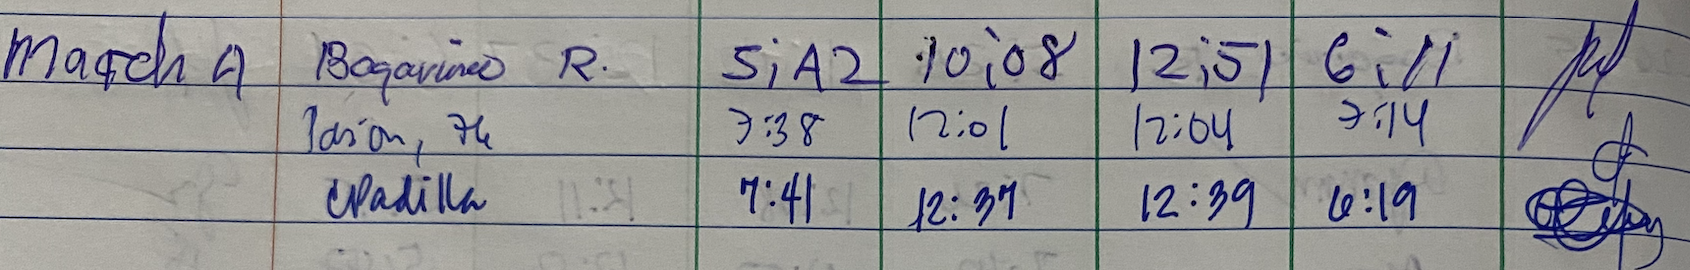 March 4 Bogarino R. 5:42 10:08 12:51 6:11
Jasion, 7:38 12:01 12:04 7:14
Padilla 7:41 12:37 12:39 6:19